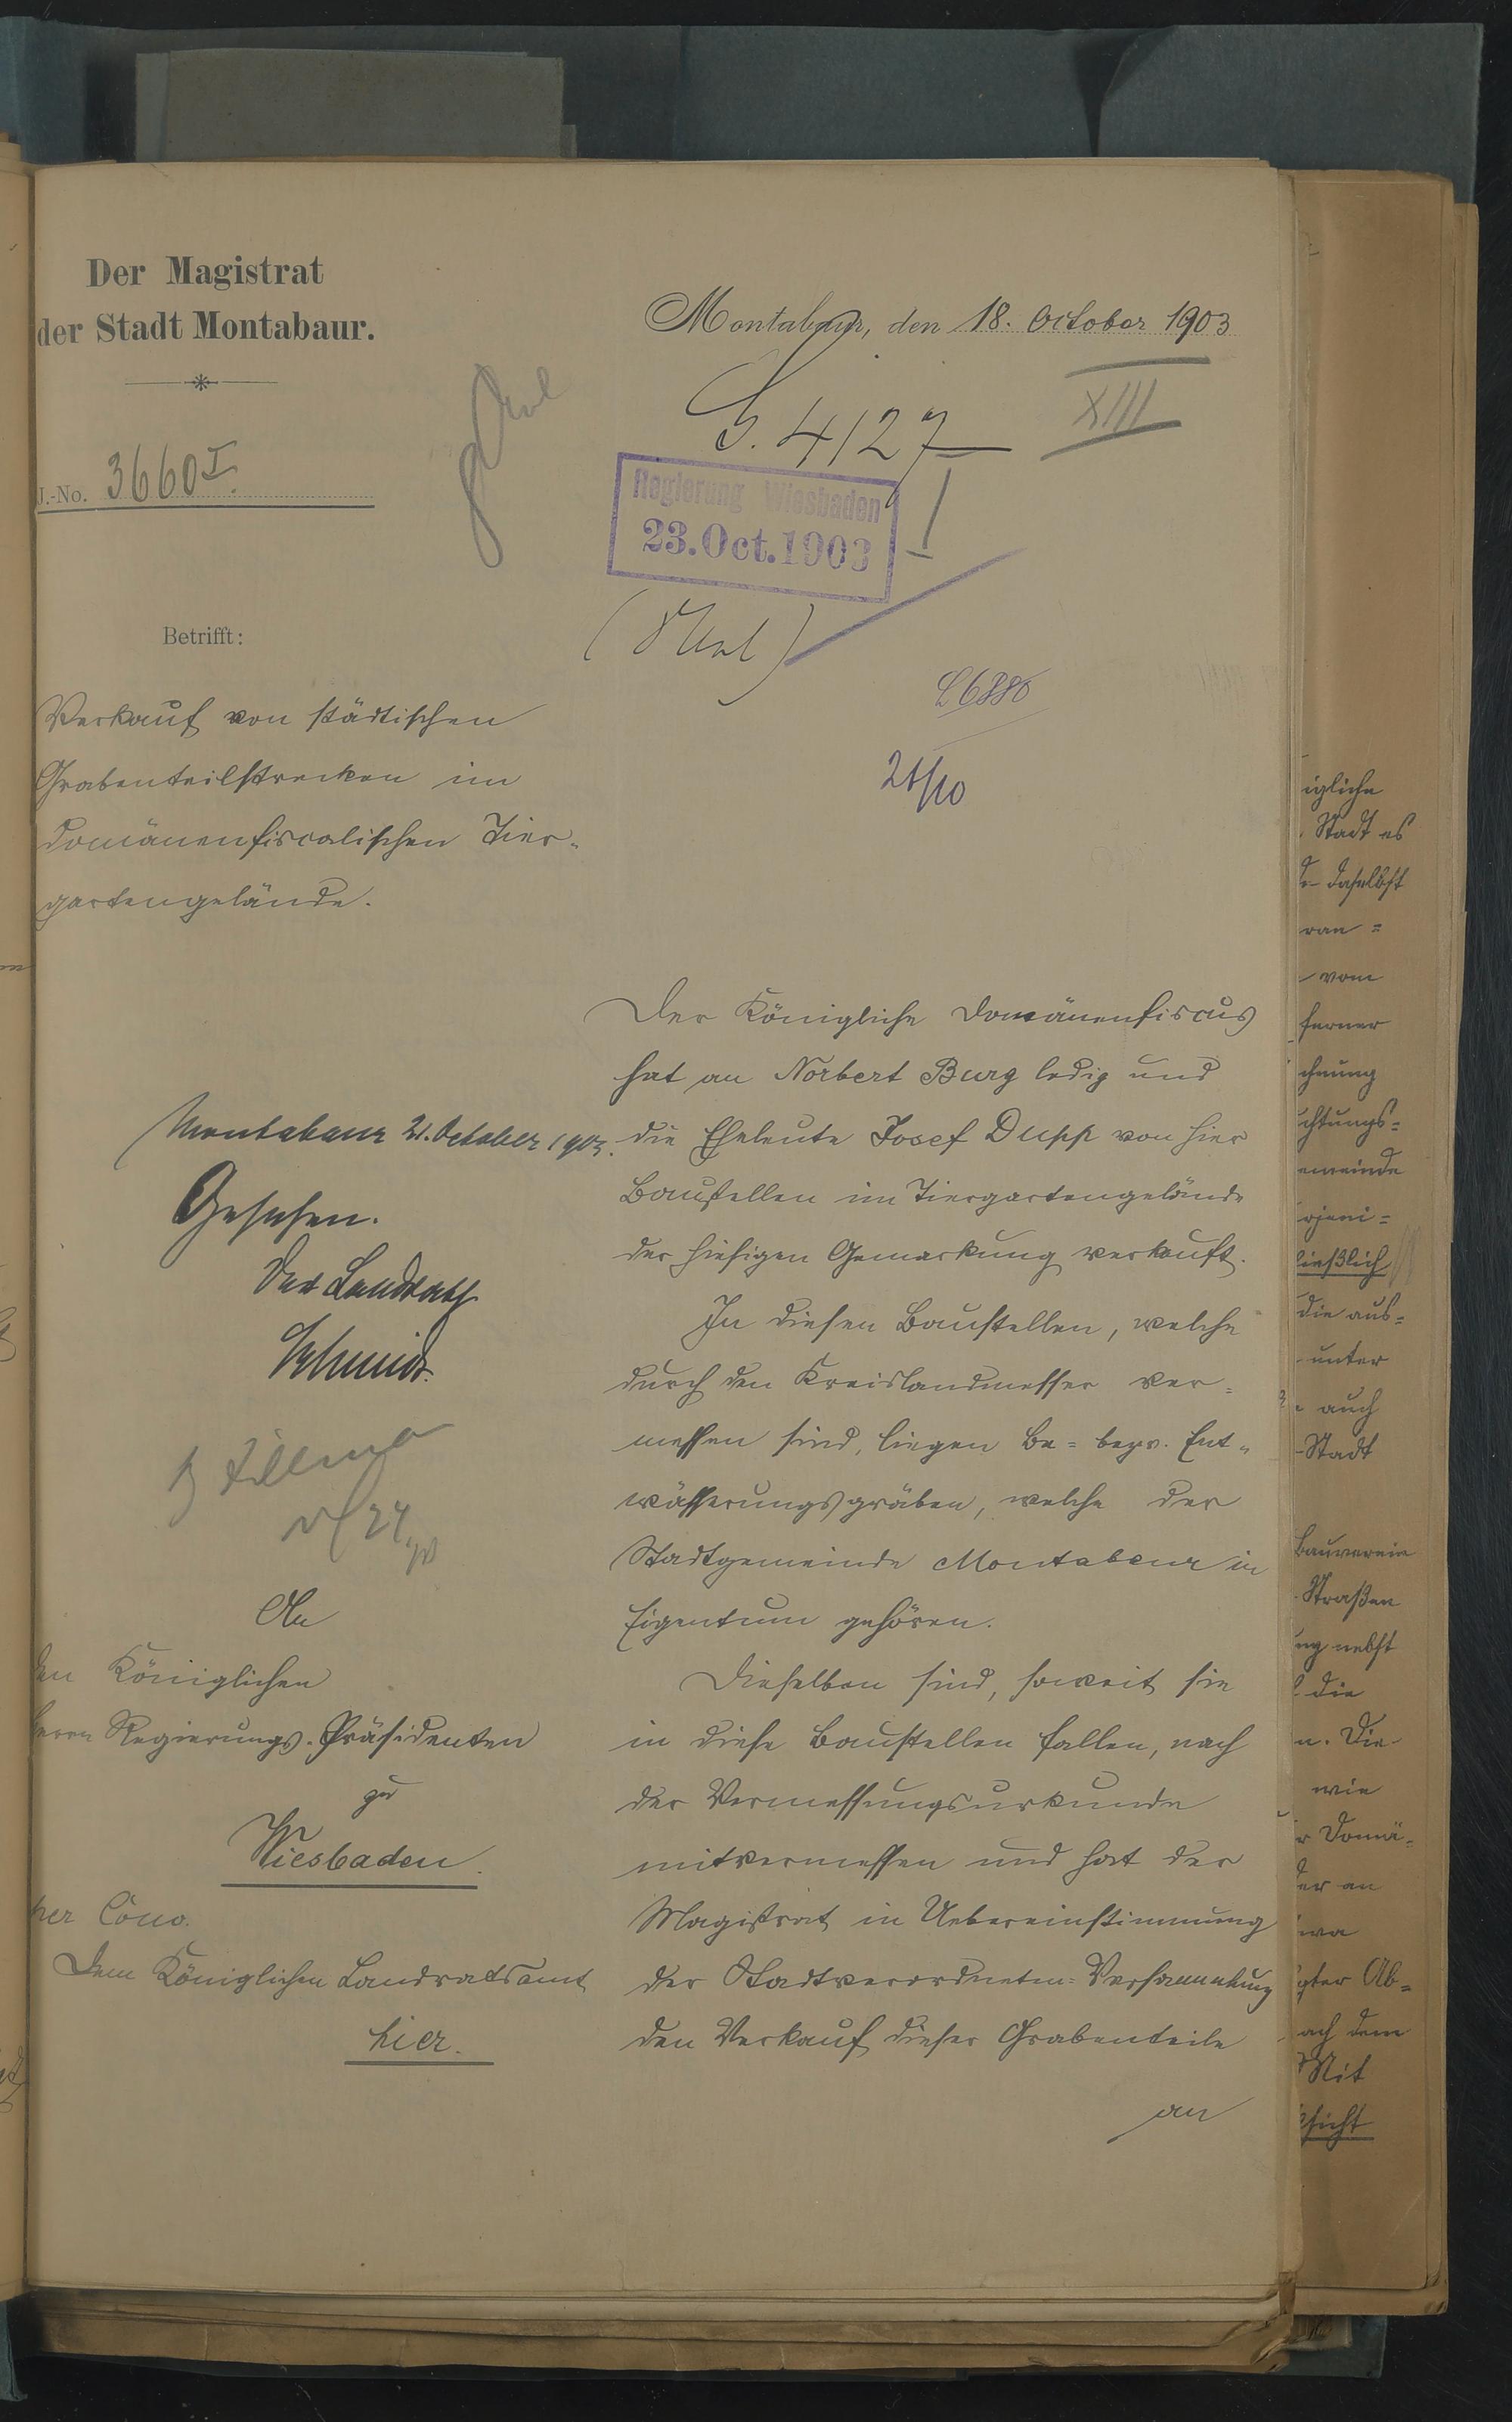 Der Magistrat
der Stadt Montabaur.
J.-No. 3660 I.
Montabaur, den 18. October 1903
XIII
S. 4127
I
Regierung Wiesbaden
23. Oct. 1903
L 6886
24/10
Betrifft:
Verkauf von städtischen
Grabenteilstrecken im
domänenfiscalischen Tier-
gartengelände.
Der Königliche Domänenfiscus
hat an Norbert Burg ledig und
die Eheleute Josef Dupp von hier
Baustellen im Tiergartengelände
der hiesigen Gemarkung verkauft.
In diesen Baustellen, welche
durch den Kreislandmesser ver-
messen sind, liegen Be- bezw. Ent-
wässerungsgräben, welche der
Stadtgemeinde Montabaur in
Eigentum gehören.
Dieselben sind, soweit sie
in diese Baustellen fallen, nach
der Vermessungsurkunde
mitvermessen und hat der
Magistrat in Uebereinstimmung
der Stadtverordneten-Versammlung
den Verkauf dieser Grabenteile
an
Montabaur 21. October 1903.
Gesehen.
Der Landrath
Schmidt.
An
den Königlichen
Herrn Regierungs-Präsidenten
zu
Wiesbaden.
per Couv.
Dem Königlichen Landratsamt
hier.
igliche
Stadt es
daselbst
ran =
vom
ferner
chnung
chtungs=
emeinde
rjeni=
ließlich
die aus=
unter
auch
Stadt
Bauverein
Straßen
ng nebst
die
n. Die
wie
r Domä=
der an
gter Ab=
ach dem
Mit
sicht